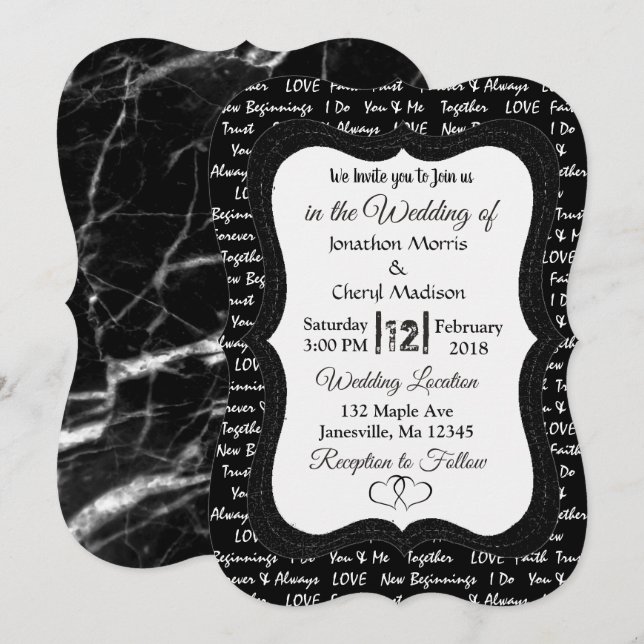 LOVE Faith Trust Forever & Always
New Beginnings I Do You & Me Together LOVE Faith
Trust Always LOVE New
You &
Always
LO
Beginn Trust
Forever & Me
Together
We Invite you to Join us
in the Wedding of
Jonathon Morris
&
Cheryl Madison
Saturday
3:00 PM
|12|
February
2018
Wedding Location
132 Maple Ave
Janesville, Ma 12345
Reception to Follow
Beginnings I Do You & Me Together LOVE Faith Trust
Forever & Always LOVE New Beginnings I Do You &
LOVE Faith Trust Forever & Always